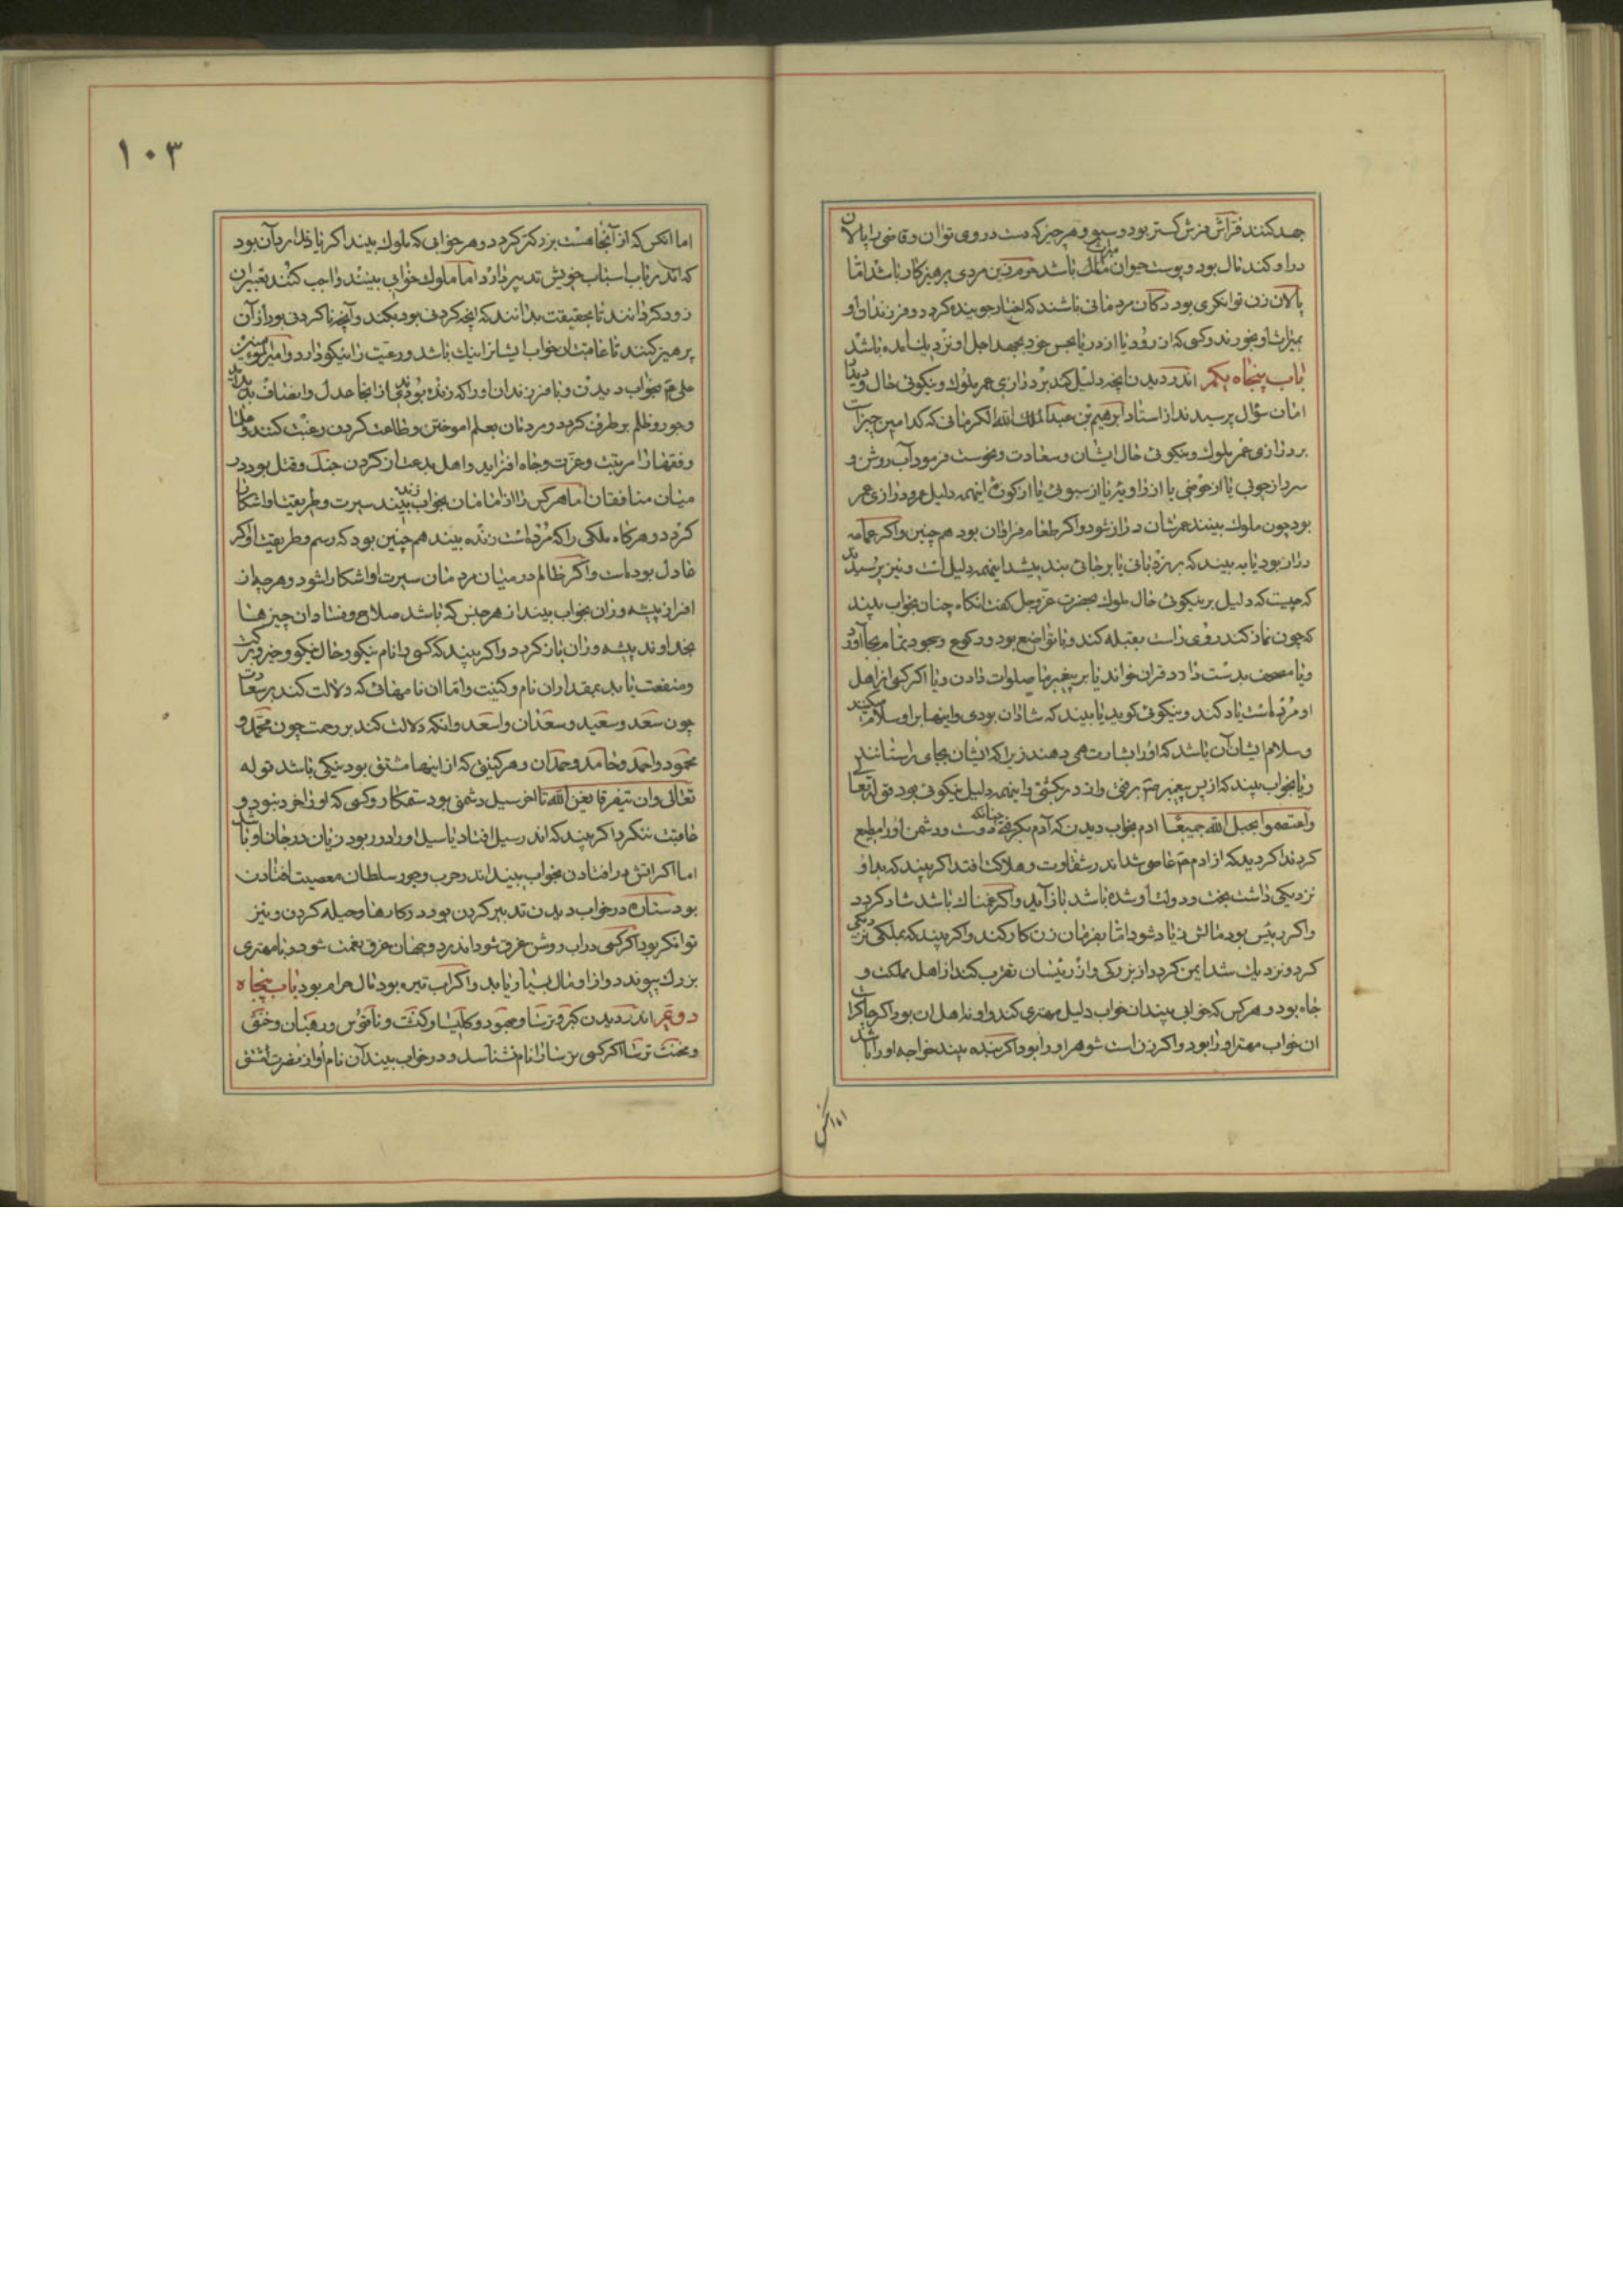 جهد کنند فراش فرش کستر بود و سبو و هر چیز که دست در وی توان و قاضی را پالان
در او کند مال بود و پوست حیوان مال باشد مردی پرهیزکار باشد اما
پالان زن توانکری بود دکان مردمانی باشند که اخبار جوینده کردد و فرزندان او
میراث او بخورند و کسی که از رود یا از دریا بجهد اجل او نزدیک آمده باشد
باب پنجاه یکم اندر دیدن آنچه دلیل کند بر درازی عمر ملوک و نیکوئی حال و دیدن
امان سؤال پرسیدند از استاد ابرهیم بن عبدالله الکرمانی که کدامین چیز است
بر درازی عمر ملوک و نیکوئی حال ایشان و سعادت و نحوست فرمود آب روشن و
سرد از جوئی یا از حوضی یا از زاویه یا از سبوئی یا از کوزه اینهمه دلیل عمر و درازی عمر
بود چون ملوک بینند عمرشان دراز شود و اکر طعام فراوان بود هم چنین و اکر عمامه
دراز بود یا به بیند که بر نردبانی یا بر جائی بلند بیشد اینهمه دلیل است و نیز پرسیدند
که چیست که دلیل بر نیکوئی حال ملوک بحضرت عز و جل کفت انکاه چنان بخواب بیند
که چون نماز کند روی راست بقبله کند و با تواضع بود و رکوع و سجود تمام بجا آورد
و یا مصحف بدست دارد قران خواند یا بر پیغمبر ما صلوات دادن و یا اکر کسی از اهل
او مرده است یاد کند و نیکوئی کوید یا بیند که شادان بودی و اینها بر او سلام میکنند
و سلام ایشان آن باشد که او را بشارت همی دهند زیرا که ایشان بجای راستانند
و یا بخواب بیند که از پس پیغمبر م برفتی و اند در کشتی و اینهمه دلیل نیکوئی بود قوله تعا
واعتصموا بحبل الله جمیعا ادم بخواب دیدن که آدم بکرفتی چنانکه دوست و دشمن او را مطیع
کردند اکر دید که از ادم م عاصی شد اندر شقاوت و هلاکت افتد اکر بیند که بدو
نزدیکی داشت بخت و دولت او شده باشد باز آید و اکر غمناک باشد شاد کردد
و اکر رئیس بود مالش زیاد شود اما بفرمان زن کار کند و اکر بیند که بملکی نزدیکی
کرد و نزدیک شد ایمن کردد از بزرکی و از رئیسان تقرب کند از اهل مملکت و
جاه بود و هر کس که خوابی بیند ان خواب دلیل مهتری کند و او نه اهل ان بود اکر چاکر است
ان خواب مهتر او را بود و اکر زن است شوهر او را بود اکر بنده بیند خواجه او را باشد
اما انکس
۱۰۳
اما انکس که از آنجا هست بزرکتر کردد و هر خوابی که ملوک بیند اکر یا دلدار بآن بود
که اندر باب اسباب خویش تدبیر دارد اما ملوک خوابی بینند واجب کنند تعبیر آن
زود کردانند تا بحقیقت بدانند که آنچه کردنی بود بکند و آنچه ناکردنی بود از آن
پرهیز کنند تا عاقبتشان خواب ایشانرا نیک باشد و رعیت را نیکو دارد و امیرالمومنین
علی ع بخواب دیدن و یا فرزندان او را که زنده بودندی از انجا عدل و انصاف پدید آید
و جور و ظلم بر طرف کردد و مردمان بعلم اموختن و طاعت کردن رغبت کنند و علما
و فقها را مرتبت و عزت و جاه افزاید و اهل بدعت از کردن جنک و قتل بود در
میان منافقان اما هر کس را از امامان بخواب زنده بیند سیرت و طریقت او اشکارا
کردد و هرکاه ملکی را که مرده است زنده بیند هم چنین بود که رسم و طریقت او اکر
عادل بوده است و اکر ظالم در میان مردمان سیرت او اشکارا شود و هر چه از
افزار پیشه وران بخواب بیند از هر جنس که باشد صلاح و فساد ان چیزها
بخداوند پیشه وران باز کردد و اکر بیند که کسی را نام نیکو و حال نیکو و خیر و برکت
و منفعت یابد بمقدار ان نام و کنیت و اما ان نامهائی که دلالت کند بر سعادت
چون سعد و سعید و سعدان و اسعد و انکه دلالت کند بر رحمت چون محمد و
محمود و احمد و حامد و حمدان و هر کنیتی که از اینها مشتق بود نیکی باشد قوله
تعالی وان یتفرقا یغن الله تا اخر سیل دشمنی بود ستمکار و کسی که او را خرد نبود و
عاقبت ننکرد اکر بیند که اندر سیل افتاد یا سیل او را در ربود زیان در جان او باشد
اما اکر اتش در افتادن بخواب بیند اندر حرب و جور سلطان معصیت افتادن
بود ستاره در خواب دیدن تدبیر کردن بود در کارها و حیله کردن و نیز
توانکر بود اکر کسی در اب روشن غرق شود اندر دو جهان غرق نعمت شود و با مهتری
بزرک پیوندد و از او مال بسیار یابد و اکر اب تیره بود مال حرام بود باب پنجاه
دوم اندر دیدن کبر و ترسا و جهود و کلیسا و کنشت و ناقوس و رهبان و خنثی
و مخنث ترسا اکر کسی ترسا را نام نشناسد و در خواب بیند آن نام او از نصرت مشتق